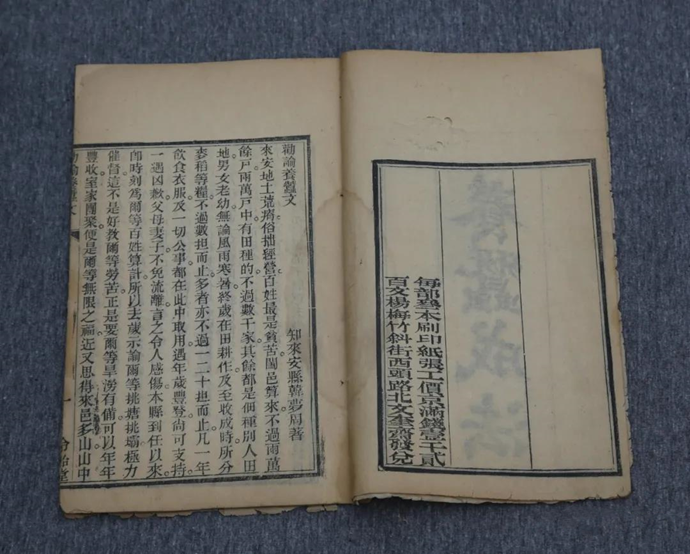 每部發本刷印紙張工價京滿錢壹千貳
百文楊梅竹斜街西頭路北文奎齋發兌
勸諭養蠶文
知來安縣韓夢周著
來安地土荒瘠俗拙經營百姓最是貧苦闔邑算來不過兩萬
餘戶兩萬戶中有田種的不過數千家其餘都是佃種別人田
地男女老幼無論風雨寒暑終歲在田耕作及至收成時所分
麥稻等糧不過數担而止多者亦不過一二十担而止凡一年
飲食衣服及一切公事都在此中取用遇年歲豐登尚可支持
一遇凶歉父母妻子不免流離言之令人感傷本縣到任以來
卽時刻爲爾等百姓算計所以去歲示諭爾等挑塘挑壩極力
催督這不是好教爾等勞苦正是要爾等旱澇有備可以年年
豐收室家團聚便是爾等無限之福近又思得來邑多山山中